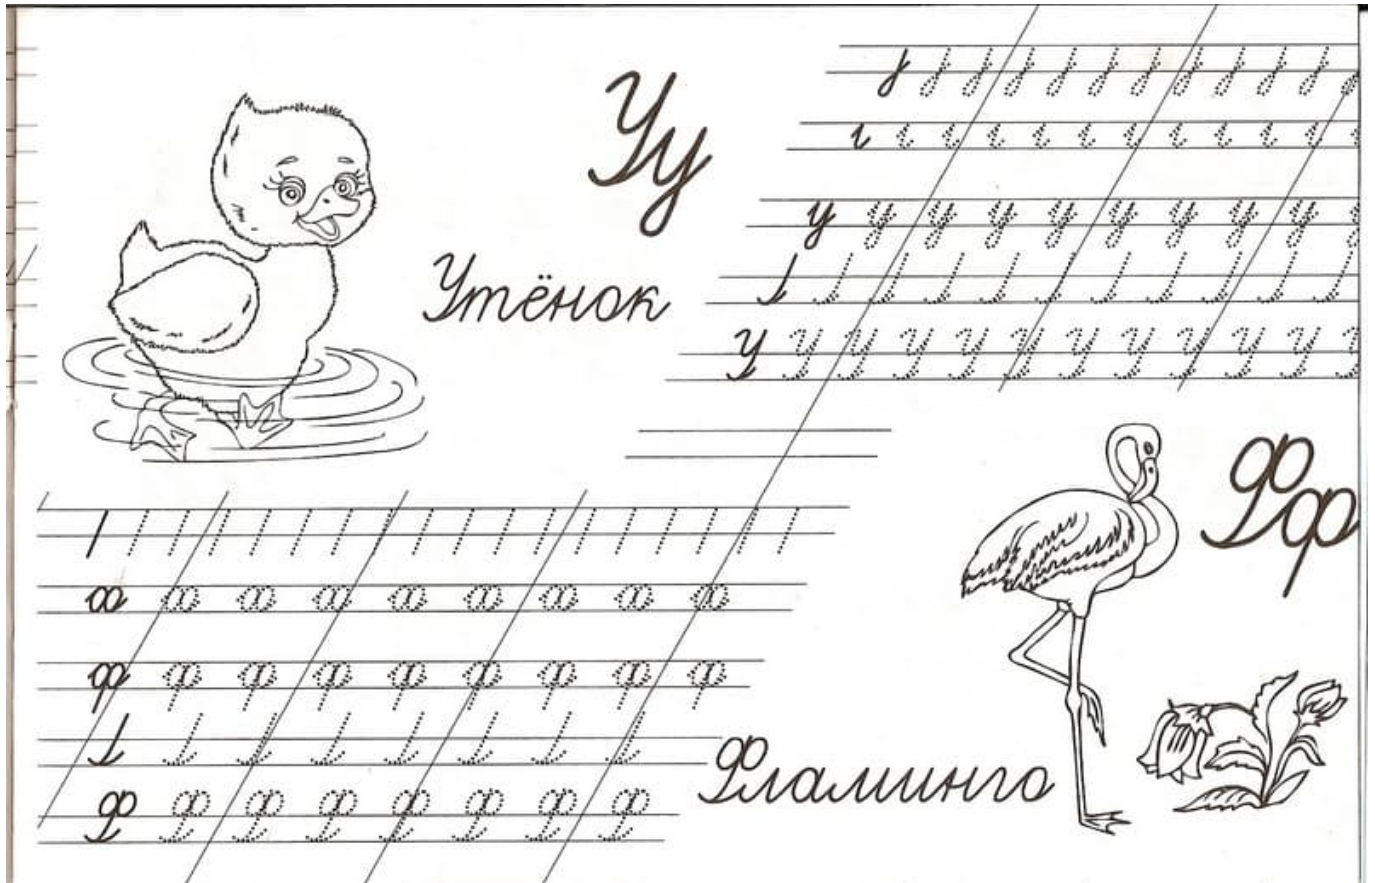 Уу
Утёнок
у у у у у у у у у у
У У У У У У У У У У У У
Фф
ф ф ф ф ф ф ф ф ф
Ф Ф Ф Ф Ф Ф Ф Ф
Фламинго